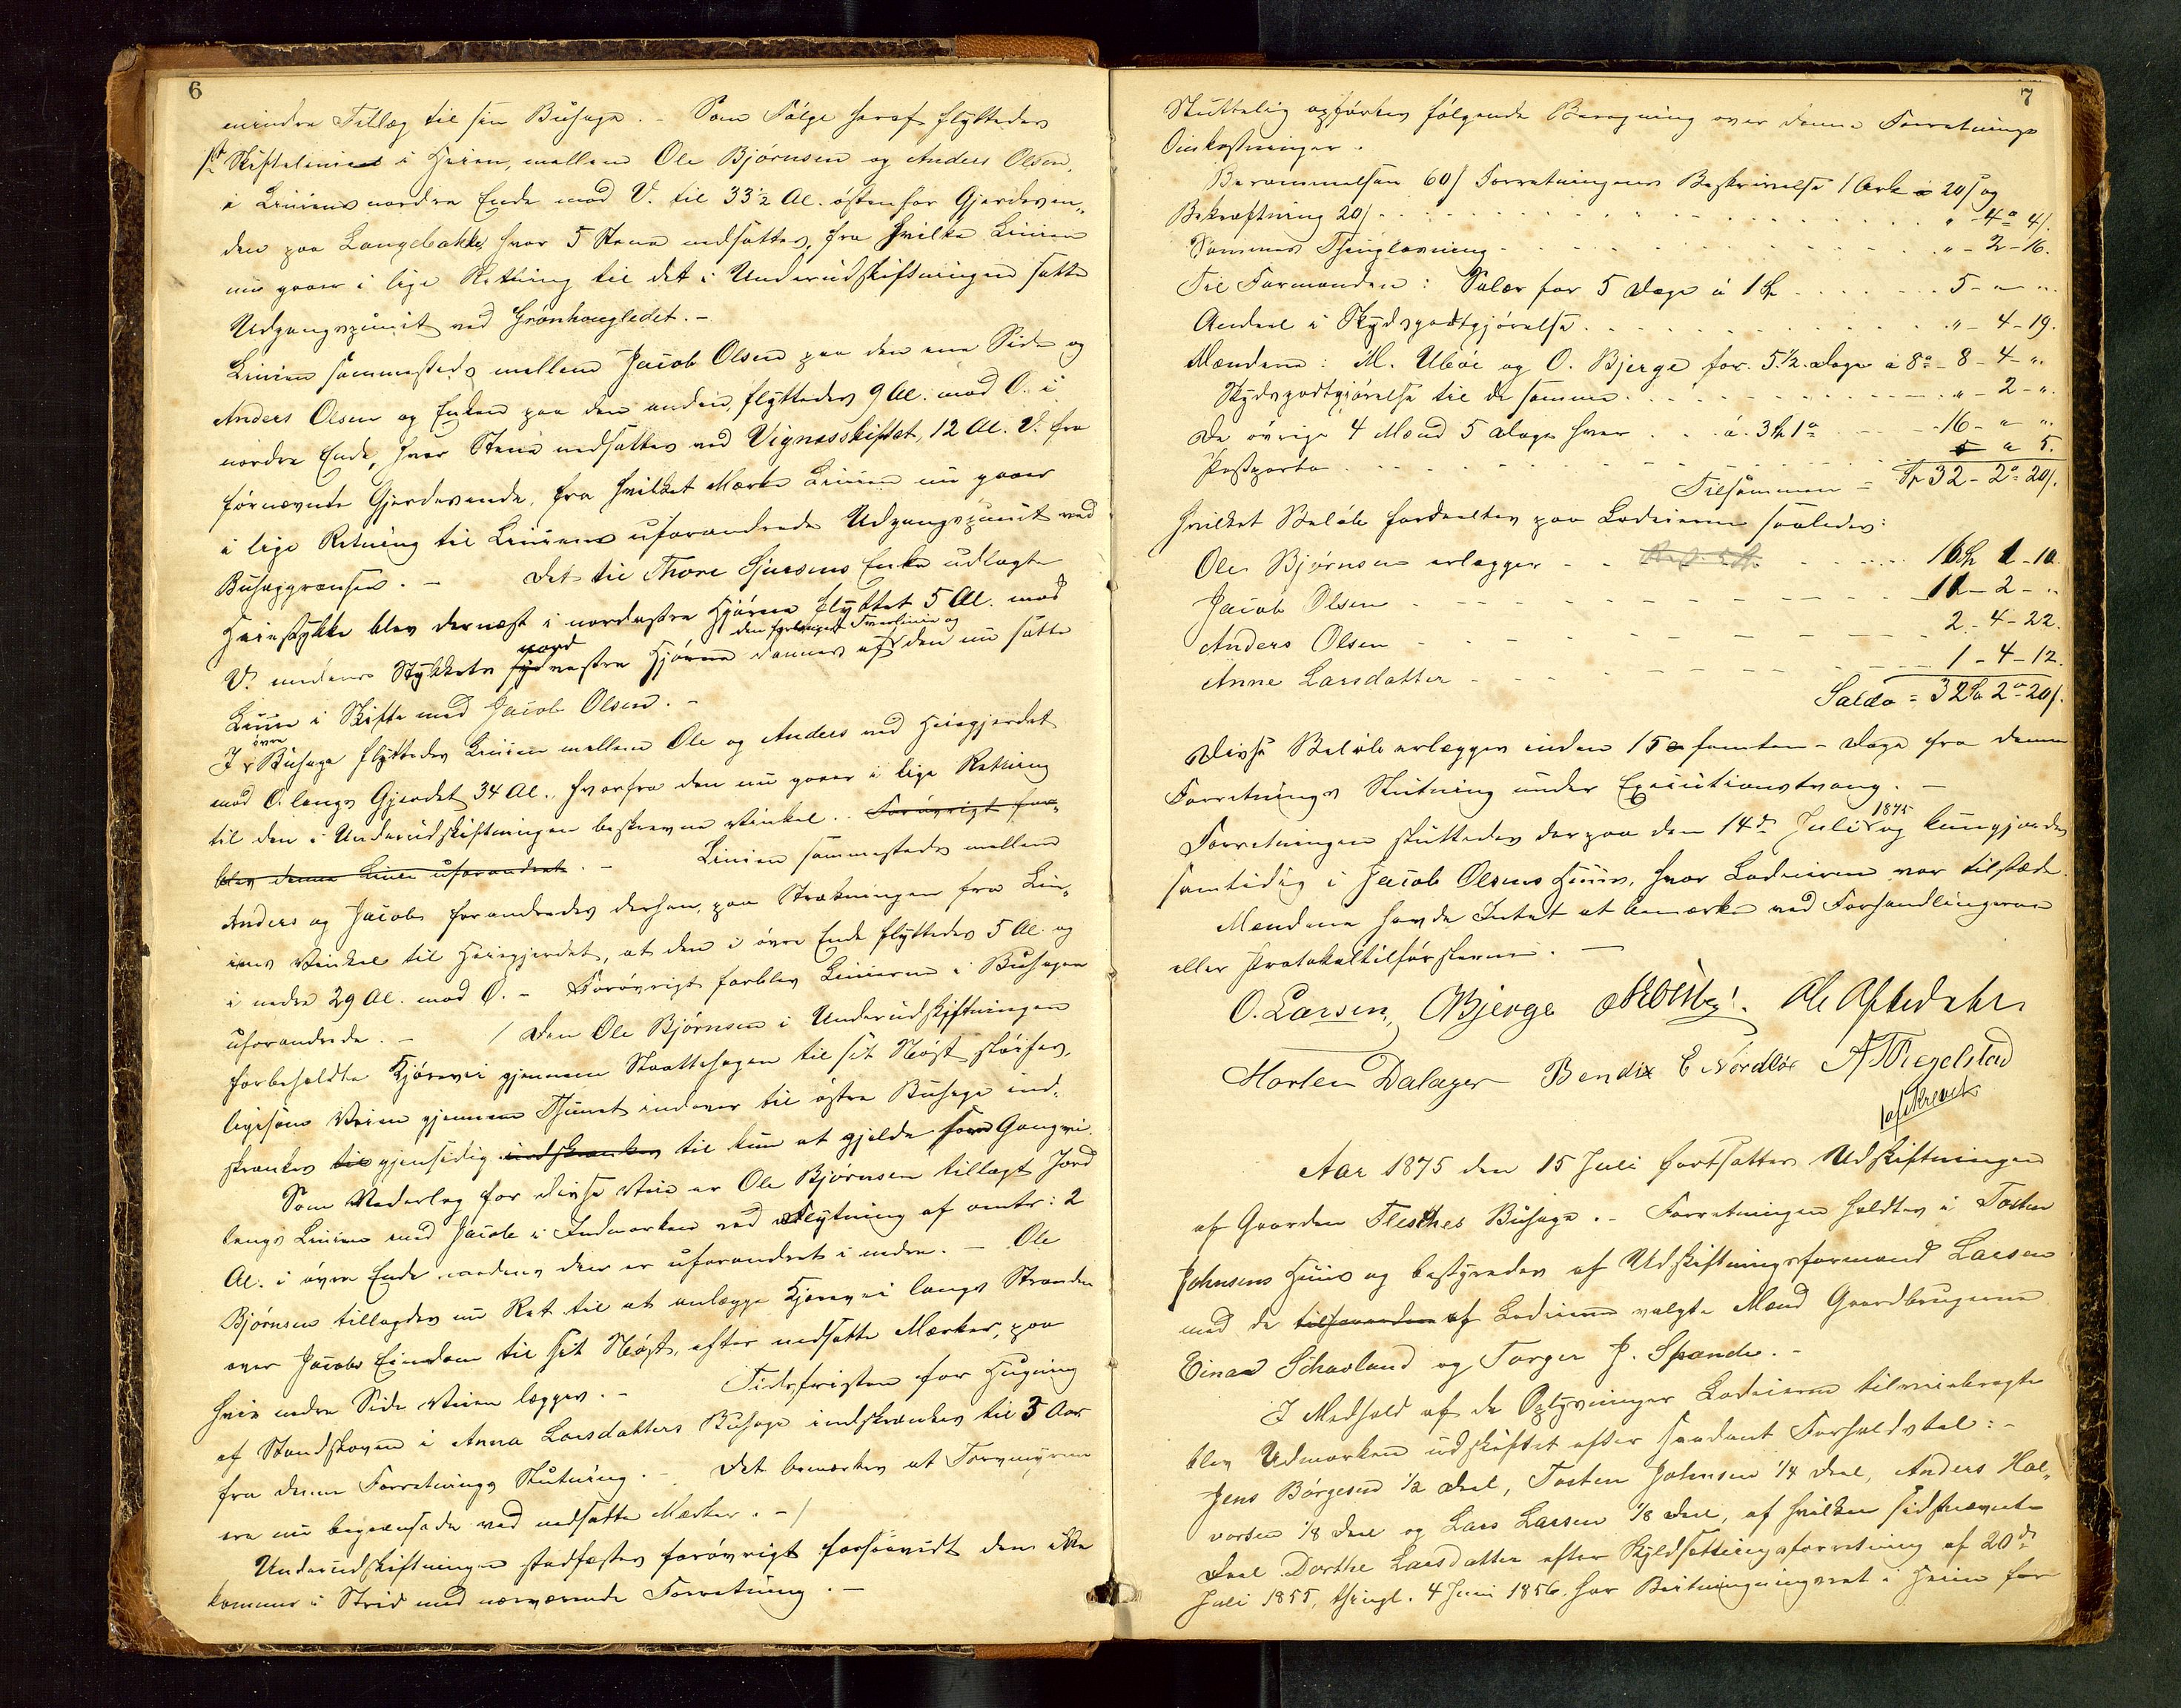 6
mindre Tillæg til sin Buhage. - Som Følge heraf flyttedes
1ste Skiftelinien i Heien, mellem Ole Bjørnsen og Anders Olsen,
i Liniens nordre Ende mod V. til 33½ Al. østenfor Gjerdeven„
den paa Langebakke, hvor 5 Stene nedsattes, fra hvilke Linien
nu gaaer i lige Retning til det i Underudskiftningen satte
Udgangspunct ved Grønhougledet. -
Linien sammesteds mellem Jacob Olsen paa den ene Side og
Anders Olsen og Enken paa den anden, flyttedes 9 Al. mod O. i
nordre Ende, hvor Stene nedsattes ved Vignesskiftet, 12 Al. V. fra
førnævnte Gjerdevende, fra hvilket Mærke Linien nu gaaer
i lige Retning til Liniens uforandrede Udgangspunct ved
Buhaggrænsen. - Det til Thore Sjursens Enke udlagte
Heiestykke blev dernæst i nordøstre Hjørne flyttet 5 Al. mod
V. medens Stykkets nordvestre Hjørne dannes af den forlængede Tverlinie og den nu satte
Linie i Skifte med Jacob Olsen. -
I øvre Buhage flyttedes Linien mellem Ole og Anders ved Heiegjerdet
mod O. langs Gjerdet 34 Al., hvorfra den nu gaaer i lige Retning
til den i Underudskiftningen beskrevne Vinkel. Forøvrigt for„
blev denne Linie uforandret. - Linien sammesteds mellem
Anders og Jacob forandredes derhen, paa Strækningen fra Lin„
iens Vinkel til Heiegjerdet, at den i øvre Ende flyttedes 5 Al. og
i nedre 29 Al. mod O. - Forøvrigt forblev Linierne i Buhagen
uforandrede. - / Den Ole Bjørnsen i Underudskiftningen
forbeholdte Kjørevei gjennem Skattehagen til sit Nøst sløifes,
ligesom Veien gjennem Thunet indover til østre Buhage ind„
skrænkes til gjensidig indskrænkes til kun at gjelde som Gangvei.
Som Vederlag for disse Veie er Ole Bjørnsen tillagt Jord
langs Linien med Jacob i Indmarken ved Flytning af omtr: 2
Al. i øvre Ende medens den er uforandret i nedre. - Ole
Bjørnsen tillagdes nu Ret til at anlægge Kjørevei langs Stranden
over Jacobs Eiendom til sit Nøst, efter nedsatte Mærker, paa
hvis nedre Side Veien lægges. - Tidsfristen for Hugning
af Standskoven i Anna Larsdatters Buhage indskrænkes til 3 Aar
fra denne Forretnings Slutning. - Det bemærkes at Torvmyrene
ere nu begrændsede ved nedsatte Mærker. - /
Underudskiftningen stadfæstes forøvrigt forsaavidt den ikke
kommer i Strid med nærværende Forretning. -
7
Sluttelig opførtes følgende Beregning over denne Forretnings
Omkostninger.
Berammelsen 60ſ Forretningens Beskrivelse 1 Ark a 20ſ og
Bekræftning 20ſ - - - - - „ - 4 o 4ſ.
Sammes Thinglæsning - - - - - „ - 2 - 16.
Til Formanden: Salær for 5 Dage á 1 Sp - - - 5 - „ - „
Andeel i Skydsgodtgjørelse - - - - „ - 4 - 19.
Mændene: M. Ubøe og O. Bjerge for 5½ Dage á 8 o - 8 - 4 - „
Skydsgodtgjørelse til de samme - - - - „ - 2 - „
De øvrige 4 Mænd 5 Dage hver . . á 3 Sp 1 o - - 16 - „ „
Postporto - - - - - „ 5.
Tilsammen = Sp 32 - 2 o 20ſ.
hvilket Beløb fordeeltes paa Lodeierne saaledes:
Ole Bjørnsen erlægger - - - - 16 Sp 1 - 10.
Jacob Olsen - - - - 11 - 2 - „
Anders Olsen - - - - 2 - 4 - 22.
Anne Larsdatter - - - - 1 - 4 - 12.
Saldo = 32 Sp 2 o 20ſ.
Disse Beløb erlægges inden 15 - femten - Dage fra denne
Forretnings Slutning under Executionstvang. -
Forretningen sluttedes derpaa den 14de Juli 1875 og kundgjordes
samtidig i Jacob Olsens Huus, hvor Lodeierne var tilstede.
Mændene havde Intet at bemærke ved Forhandlingerne
eller Protokoltilførslerne. -
O. Larsen, OBjerge MUbøe. Ole Aftedahl
Morten Dalager Bendix E Nordbøe A Tegelstad
afskrevet
Aar 1875 den 15 Juli fortsattes Udskiftningen
af Gaarden Flesches Buhage. - Forretningen holdtes i Tosten
Johnsens Huus og bestyredes af Udskiftningsformand Larsen
med de tilsvarede af Lodeierne valgte Mænd Gaardbrugerne
Einar Schavland og Torger J. Spande. -
I Medhold af de Oplysninger Lodeierne tilveiebragte
blev Udmarken udskiftet efter saadant Forholdstal: -
Jens Børgesen ½ Deel, Tosten Johnsen ¼ Deel, Anders Hal„
vorsen ⅛ Deel og Lars Larsen ⅛ Deel, af hvilken sidstnævnte
Deel Dorthe Larsdatter efter Skyldsætningsforretning af 20de
Juli 1855, thingl. 4 Juni 1856, har Beitningsret i Heien for